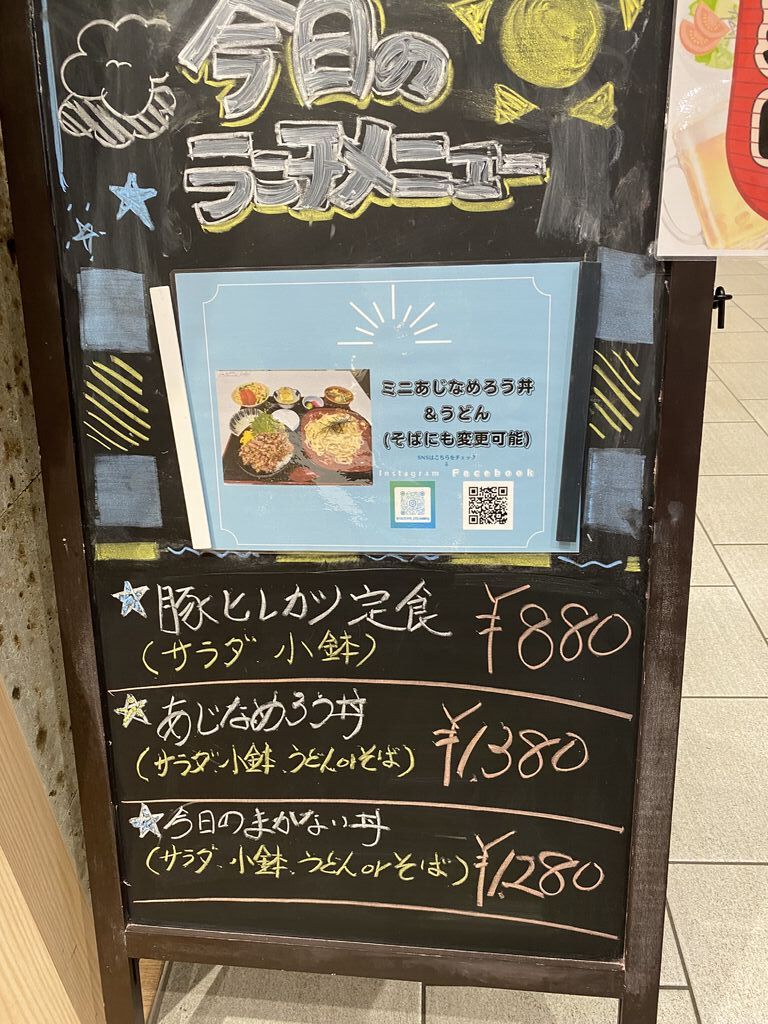 今日の
ランチメニュー
ミニあじなめろう丼
&うどん
(そばにも変更可能)
SNSはこちらをチェック
Instagram Facebook
☆豚ヒレカツ定食 ¥880
(サラダ 小鉢)
☆あじなめろう丼 ¥1,380
(サラダ 小鉢 うどんorそば)
☆今日のまかない丼 ¥1,280
(サラダ 小鉢 うどん or そば)